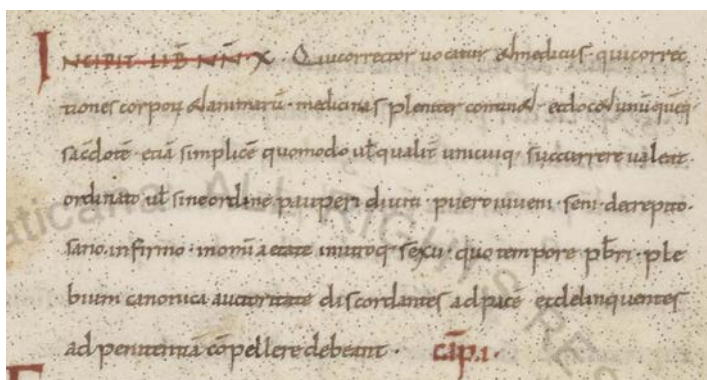 INCIPIT LIB̅ NN̅ X. Qui corrector uocatur & medicus. qui correc
tiones corporu & animarũ. medicinas pleniter contin&. et doc& unũ quẽq.
sac̅dotẽ. etiã simplicẽ quomodo ul̅ qualit̅ unicuiq. succurrere ualeat.
ordinato ul̅ sine ordine. pauperi diuiti. puero iuueni. seni. decrepito.
sano. infirmo. in om̅i aetate in utroq. sexu. quo tempore pb̅ri. ple
bium canonica auctoritate discordantes ad pacẽ et delinquentes
ad penitentiã cõpellere debeant. CAP̅. I.
aticana ALL RIGHTS RES